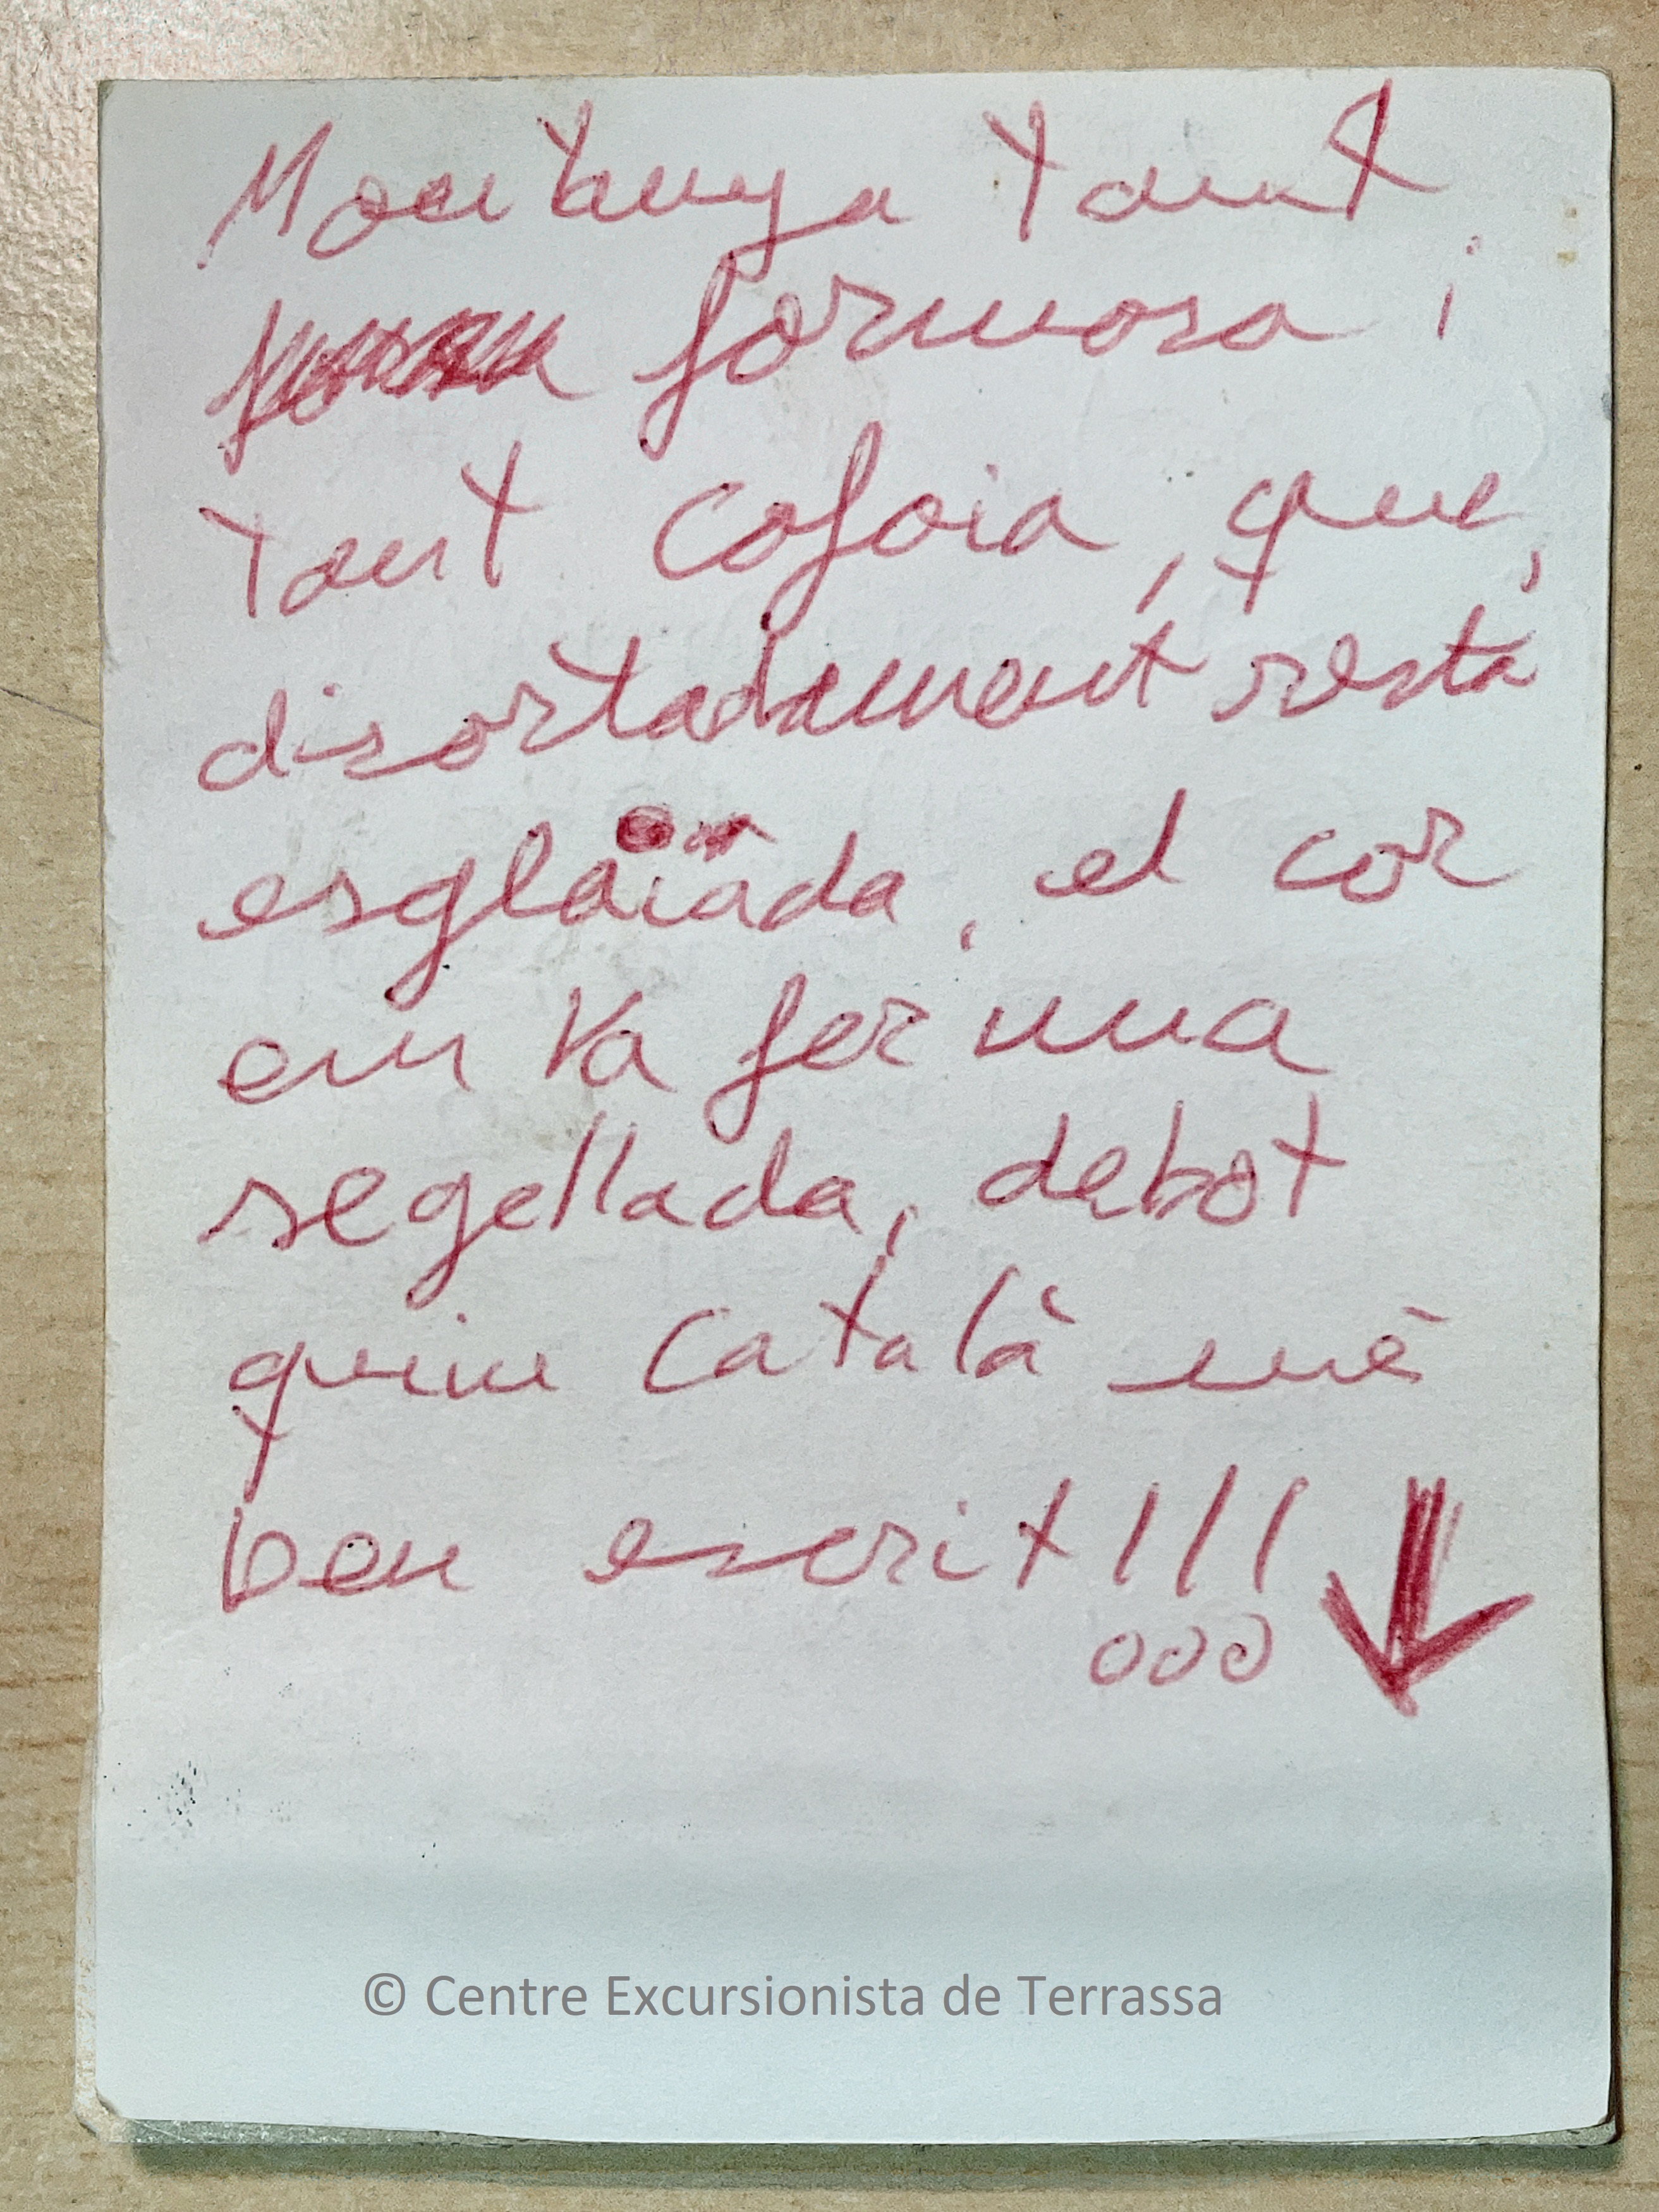 Montanya tant
formosa i
tant cofoia, que,
disortadament resta
esglaïada, el cor
em va fer una
segellada, debot
quin català mè
ben escrit!!!
© Centre Excursionista de Terrassa